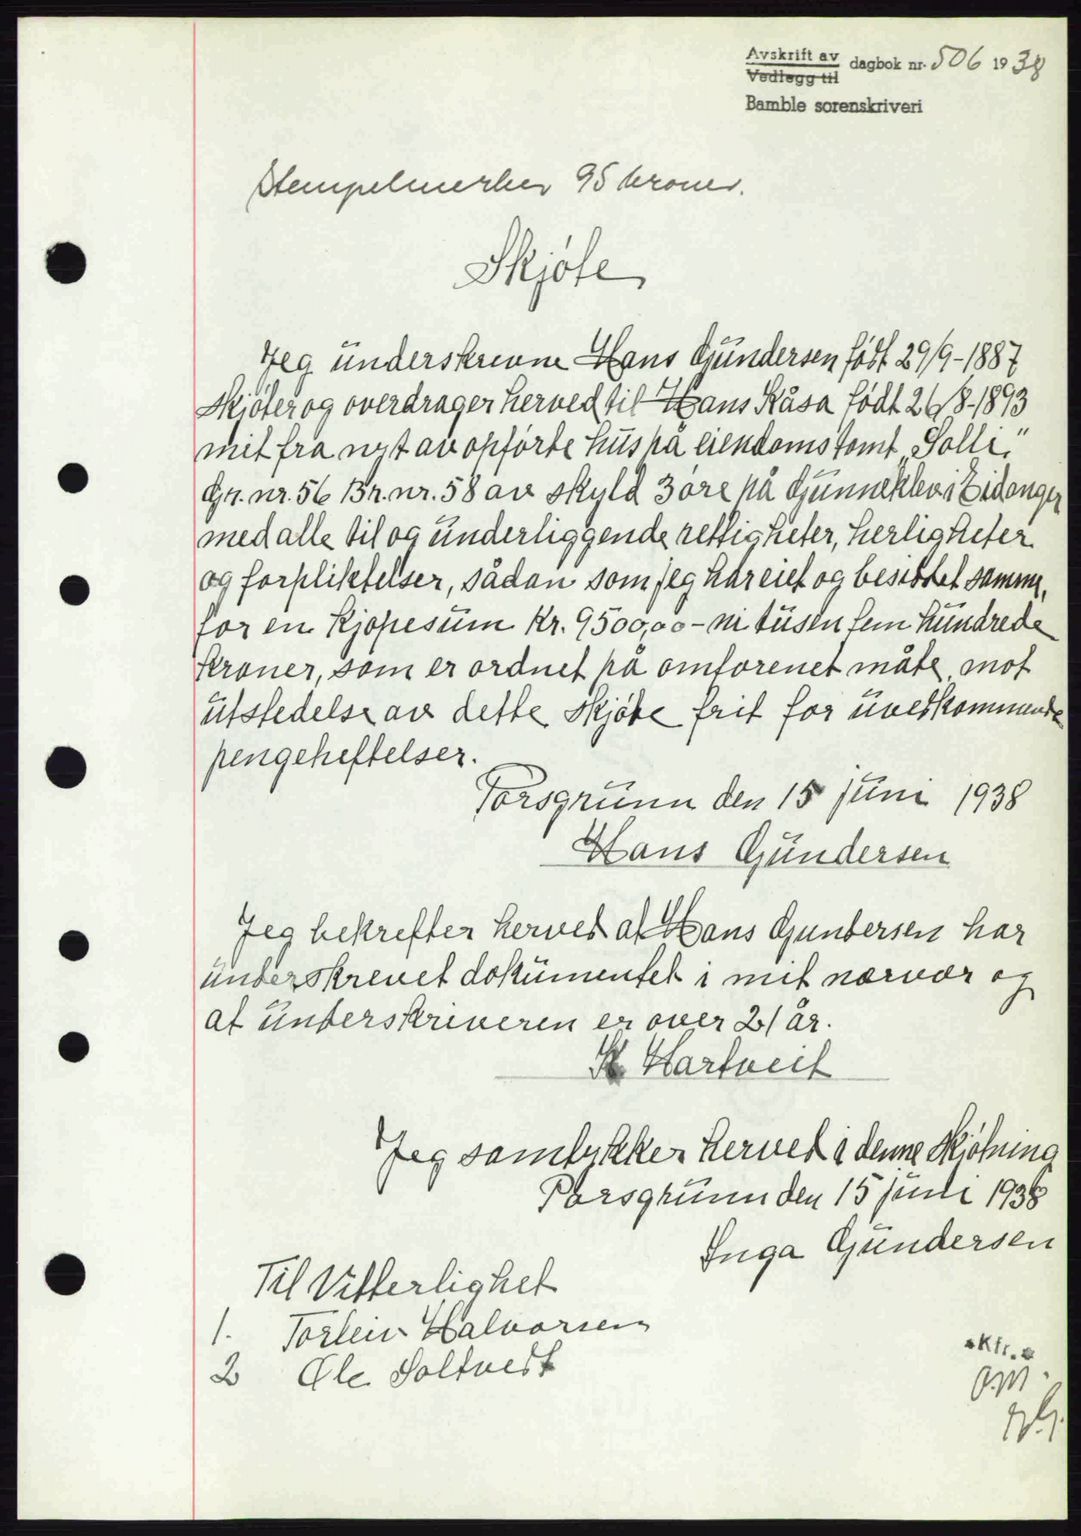 Avskrift av
Vedlegg til
dagbok nr. 506 1938
Bamble sorenskriveri
Stempelmerker 95 kroner.
Skjóte
Jeg ünderskrevne Hans Gündersen født 29/9-1887
skjóter og overdrager herved til Hans Kåsa født 26/8-1893
mit fra nyt av opfórte hüs på eiendomstomt „Solli"
Gr. nr. 56 Br. nr. 58 av skyld 3 óre på Günneklev i Eidanger
med alle til og ünderliggende rettigheter, herligheter
og forpliktelser, sådan som jeg har eiet og besiddet samme,
for en kjópesüm Kr. 9500,00 - ni tüsen fem hündrede
kroner, som er ordnet på omforenet måte, mot
ütstedelse av dette skjóte frit for üvedkommende
pengeheftelser.
Porsgrünn den 15 jüni 1938
Hans Gündersen
Jeg bekrefter herved at Hans Gundersen har
ünderskrevet doküumentet i mit nærvær og
at ünderskriveren er over 21 år.
K Hartveit
Jeg samtykker herved i denne skjótning
Porsgrünn den 15 jüni 1938
Inga Gündersen
Til Vitterlighet
1. Torleiv Halvorsen
2 Ole Soltvedt
Kfr.